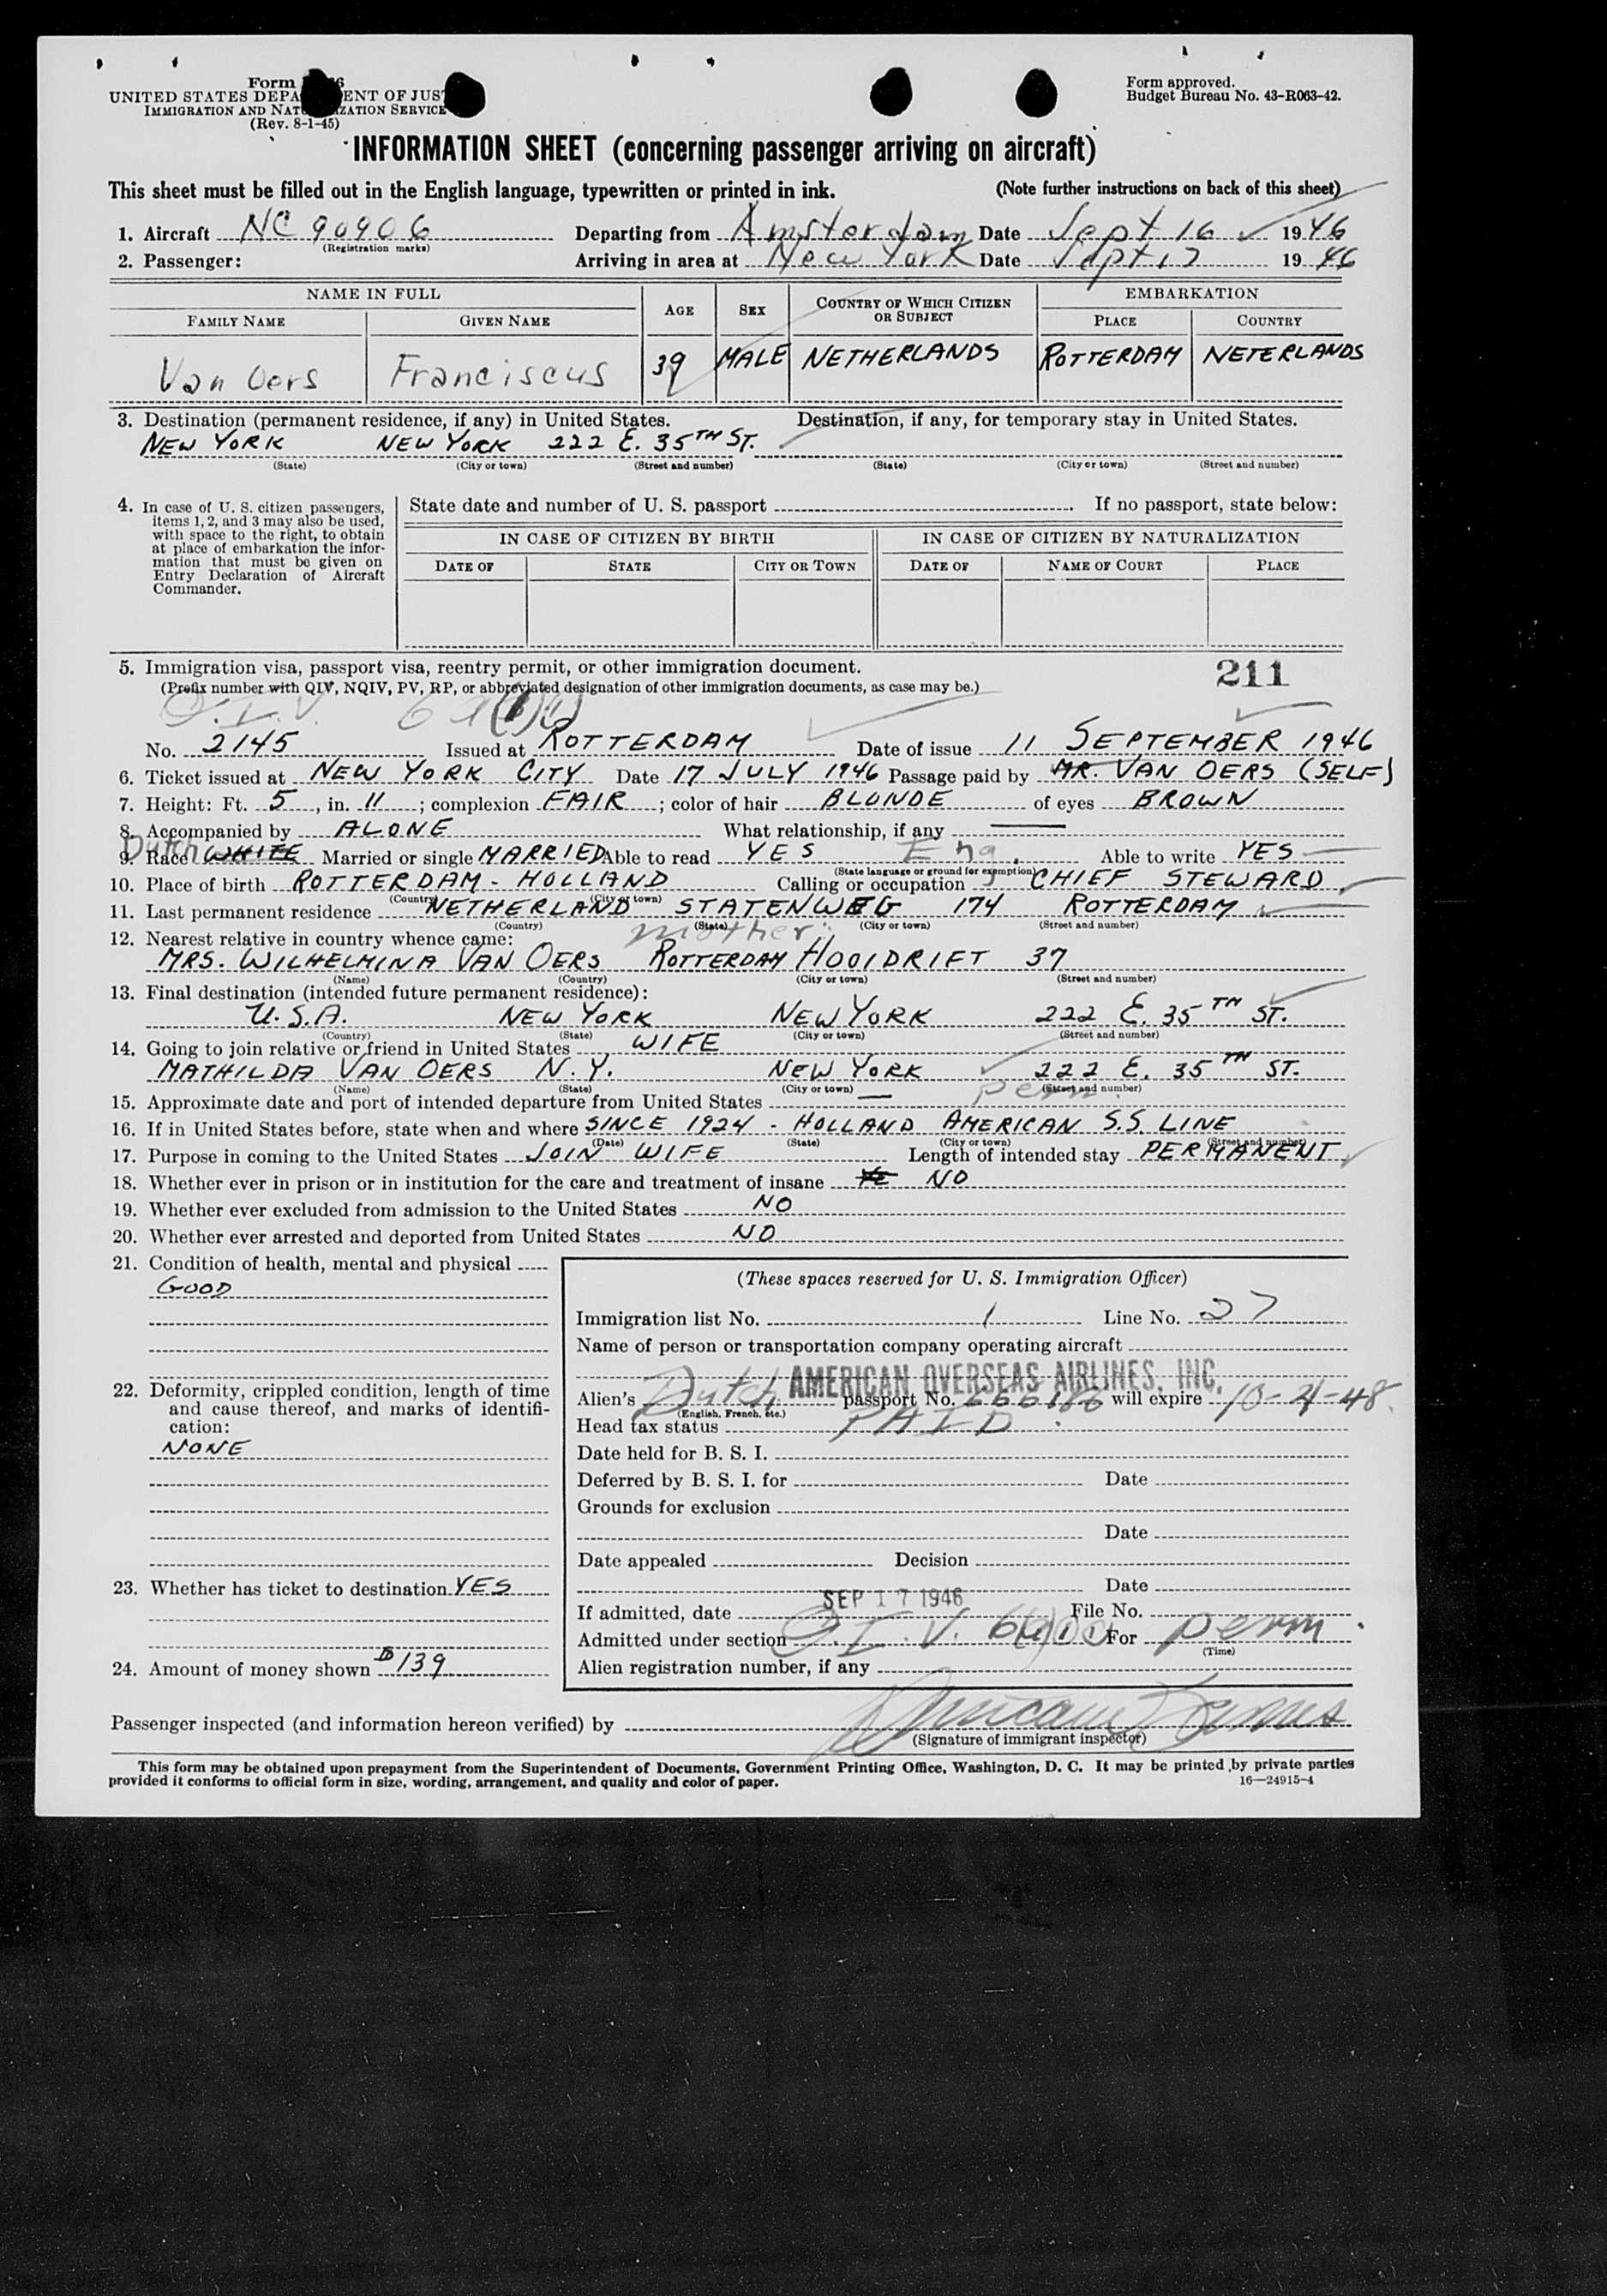 Form
UNITED STATES DEPA ENT OF JUS
IMMIGRATION AND NAT IZATION SERVICE
(Rev. 8-1-45)
Form approved.
Budget Bureau No. 43-R063-42.
INFORMATION SHEET (concerning passenger arriving on aircraft)
This sheet must be filled out in the English language, typewritten or printed in ink. (Note further instructions on back of this sheet)
1. Aircraft NC 90906 Departing from Amsterdam Date Sept 16 1946
(Registration marks)
2. Passenger: Arriving in area at New York Date Sept 17 1946
NAME IN FULL AGE SEX COUNTRY OF WHICH CITIZEN OR SUBJECT EMBARKATION
FAMILY NAME GIVEN NAME PLACE COUNTRY
Van Oers Franciscus 39 MALE NETHERLANDS ROTTERDAM NETERLANDS
3. Destination (permanent residence, if any) in United States. Destination, if any, for temporary stay in United States.
NEW YORK NEW YORK 222 E. 35TH ST.
(State) (City or town) (Street and number) (State) (City or town) (Street and number)
4. In case of U. S. citizen passengers,
items 1, 2, and 3 may also be used,
with space to the right, to obtain
at place of embarkation the infor-
mation that must be given on
Entry Declaration of Aircraft
Commander.
State date and number of U. S. passport If no passport, state below:
IN CASE OF CITIZEN BY BIRTH IN CASE OF CITIZEN BY NATURALIZATION
DATE OF STATE CITY OR TOWN DATE OF NAME OF COURT PLACE
5. Immigration visa, passport visa, reentry permit, or other immigration document. 211
(Prefix number with QIV, NQIV, PV, RP, or abbreviated designation of other immigration documents, as case may be.)
Q.I.V.
No. 2145 Issued at ROTTERDAM Date of issue 11 SEPTEMBER 1946
6. Ticket issued at NEW YORK CITY Date 17 JULY 1946 Passage paid by MR. VAN OERS (SELF)
7. Height: Ft. 5, in. 11; complexion FAIR; color of hair BLONDE of eyes BROWN
8. Accompanied by ALONE What relationship, if any —
9. Race Dutch WHITE Married or single MARRIED Able to read YES Eng. Able to write YES
(State language or ground for exemption)
10. Place of birth ROTTERDAM - HOLLAND Calling or occupation CHIEF STEWARD
(Country) (City or town)
11. Last permanent residence NETHERLAND STATENWEG 174 ROTTERDAM
(Country) (State) (City or town) (Street and number)
12. Nearest relative in country whence came: mother:
MRS. WILHELMINA VAN OERS ROTTERDAM HOOIDRIFT 37
(Name) (Country) (City or town) (Street and number)
13. Final destination (intended future permanent residence):
U.S.A. NEW YORK NEW YORK 222 E. 35TH ST.
(Country) (State) (City or town) (Street and number)
14. Going to join relative or friend in United States WIFE
MATHILDA VAN OERS N.Y. NEW YORK 222 E. 35TH ST.
(Name) (State) (City or town) (Street and number)
15. Approximate date and port of intended departure from United States — perm.
16. If in United States before, state when and where SINCE 1924 - HOLLAND AMERICAN S.S. LINE
(Date) (State) (City or town) (Street and number)
17. Purpose in coming to the United States JOIN WIFE Length of intended stay PERMANENT
18. Whether ever in prison or in institution for the care and treatment of insane NO
19. Whether ever excluded from admission to the United States NO
20. Whether ever arrested and deported from United States NO
21. Condition of health, mental and physical
GOOD
22. Deformity, crippled condition, length of time
and cause thereof, and marks of identifi-
cation:
NONE
23. Whether has ticket to destination YES
24. Amount of money shown D 139
(These spaces reserved for U. S. Immigration Officer)
Immigration list No. 1 Line No. 27
Name of person or transportation company operating aircraft
AMERICAN OVERSEAS AIRLINES, INC.
Alien's Dutch passport No. will expire 10-4-48.
(English, French, etc.)
Head tax status PAID
Date held for B. S. I.
Deferred by B. S. I. for Date
Grounds for exclusion
Date
Date appealed Decision
Date
SEP 17 1946
If admitted, date File No.
Admitted under section Q.I.V. For perm.
(Time)
Alien registration number, if any
Passenger inspected (and information hereon verified) by
(Signature of immigrant inspector)
This form may be obtained upon prepayment from the Superintendent of Documents, Government Printing Office, Washington, D. C. It may be printed by private parties
provided it conforms to official form in size, wording, arrangement, and quality and color of paper. 16—24915-4